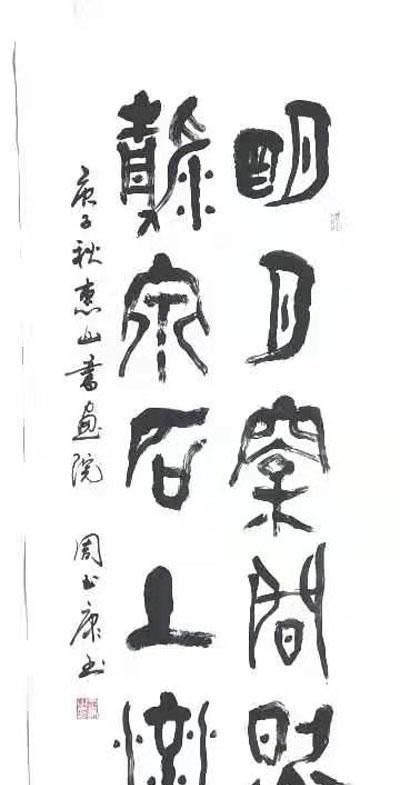 明月松間照
清泉石上流
庚子秋惠山書画院 周康书